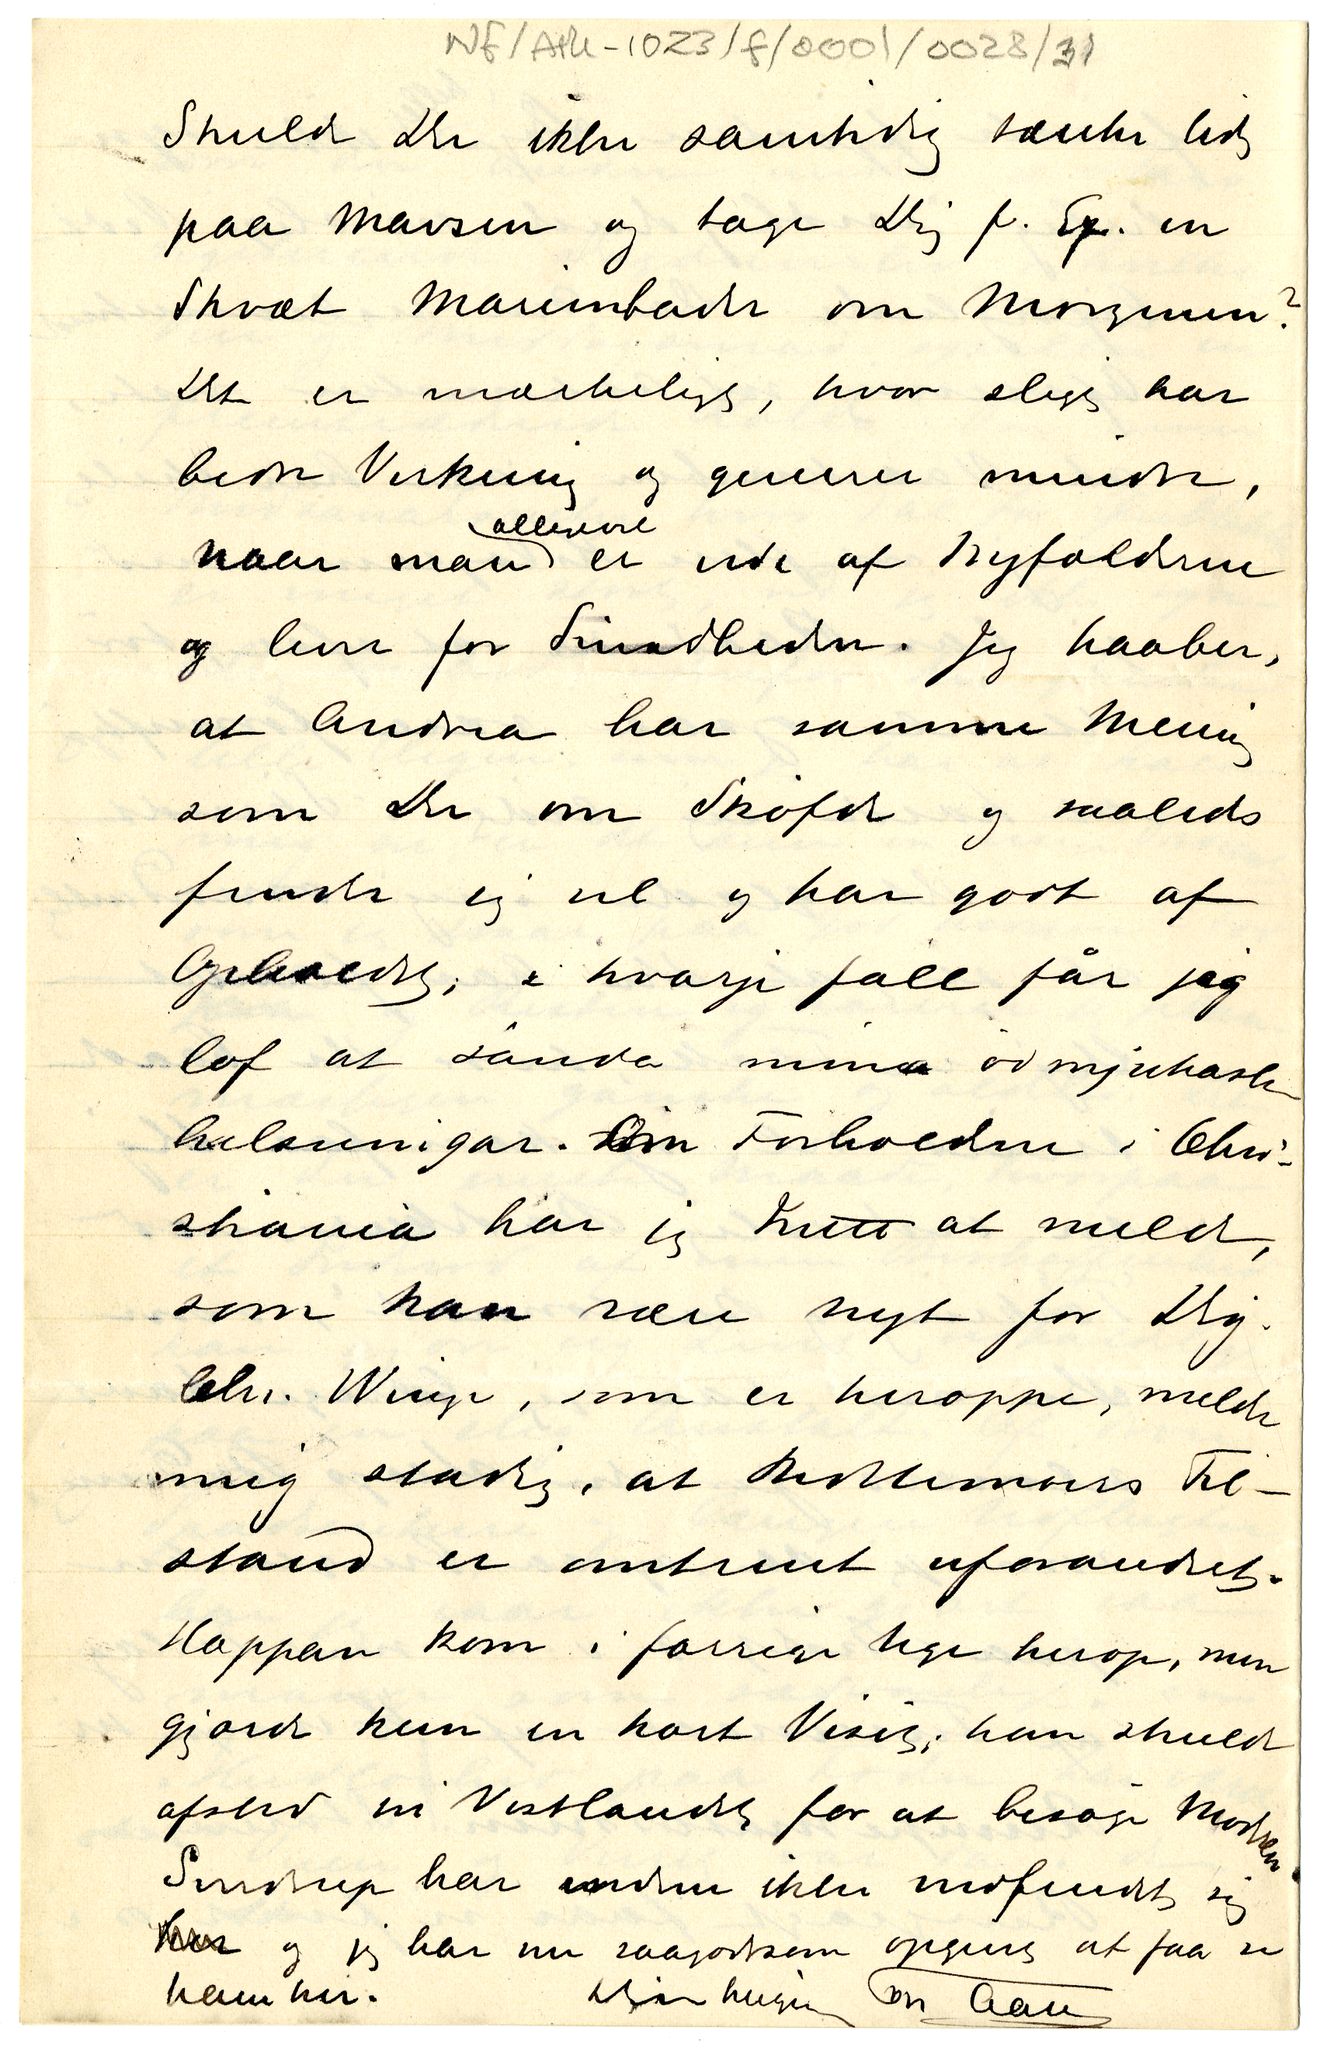 NF/Ark-1023/f/0001/0028/31
Skulde Du ikke samtidig tænke lidt
paa Mavsen og tage Dig f. Ex. en
Skvæt Marienbader om Morgenen?
Det er mærkeligt, hvor sligt har
bedre Virkning og generer mindre,
allevel
naar man er ude af Byfolderne
og lever for Sundheden. Jeg haaber,
at Andrea har samme Mening
som Du om Sköfde og saaledes
finder sig vel og har godt af
Opholdet; i hvarje fall får jag
lof at sända mina ödmjukaste
helsningar. Om Forholdene i Chri-
stiania har jeg Intet at melde,
som kan være nyt for Dig.
Chr. Winge, som er heroppe, melder
mig stadig, at Bedstemoers Til-
stand er omtrent uforandret.
Hoppen kom i forrige Uge herop, men
gjorde kun en kort Visit; han skulde
afsted til Vestlandet for at besøge Modren
Sendrup har endnu ikke indfundet sig
og jeg har nu saagodtsom opgivet at faa se
ham her. Din hengivne